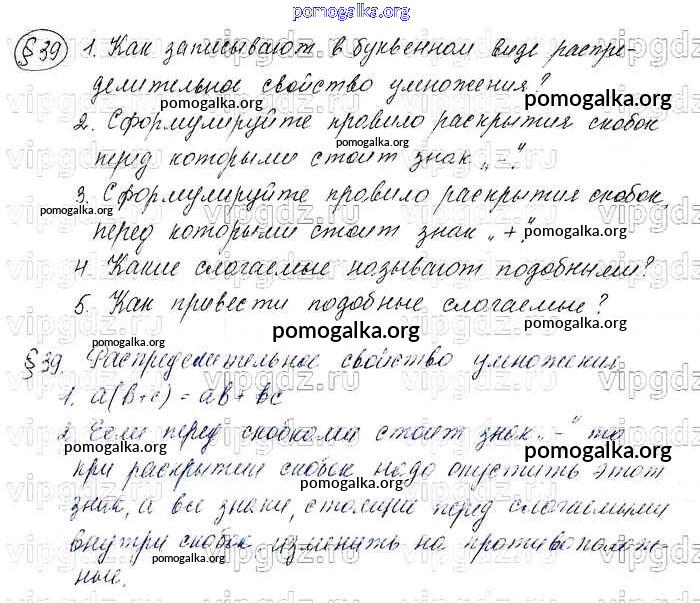 pomogalka.org
§ 39 1. Как записывают в буквенном виде распре-
делительное свойство умножения?
pomogalka.org pomogalka.org
2. Сформулируйте правило раскрытия скобок
pomogalka.org
перед которыми стоит знак „-".
3. Сформулируйте правило раскрытия скобок,
pomogalka.org
перед которыми стоит знак „+".
pomogalka.org
4. Какие слагаемые называют подобными?
5. Как привести подобные слагаемые?
pomogalka.org
§ 39. Распределительное свойство умножения
1. а(в+с) = ав + вс
pomogalka.org
2. Если перед скобками стоит знак „-" то
pomogalka.org
при раскрытии скобок надо опустить этот
знак, а все знаки, стоящие перед слагаемыми
внутри скобок изменить на противополож-
pomogalka.org
ные.
pomogalka.org
vipgdz.ru